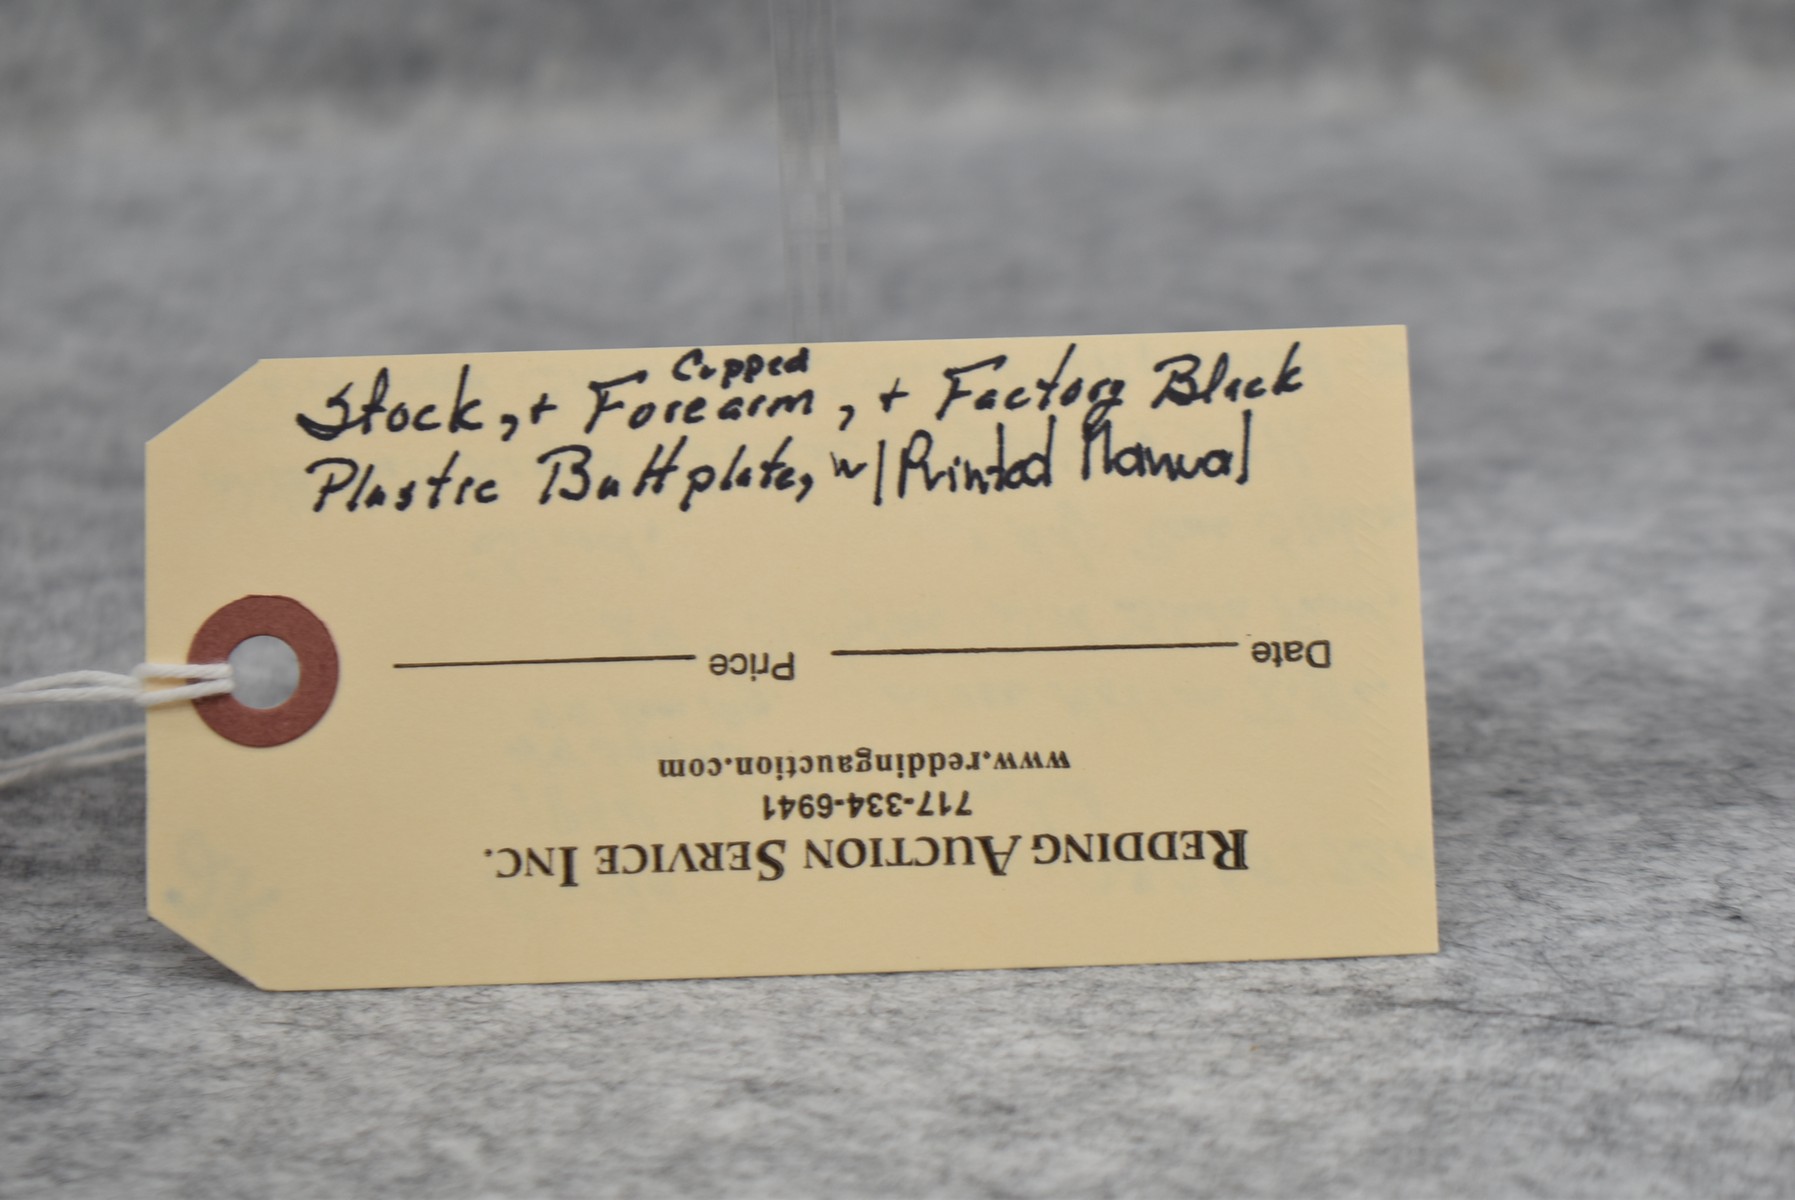 Capped
Stock, + Forearm, + Factory Black
Plastic Buttplate, w/ Printed Manual
REDDING AUCTION SERVICE INC.
717-334-6941
www.reddingauction.com
Date Price